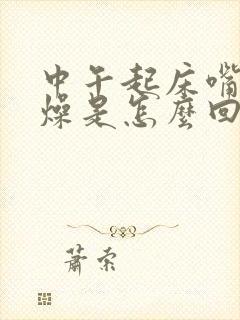 中午起床嘴
燥是怎麼回
蕭索